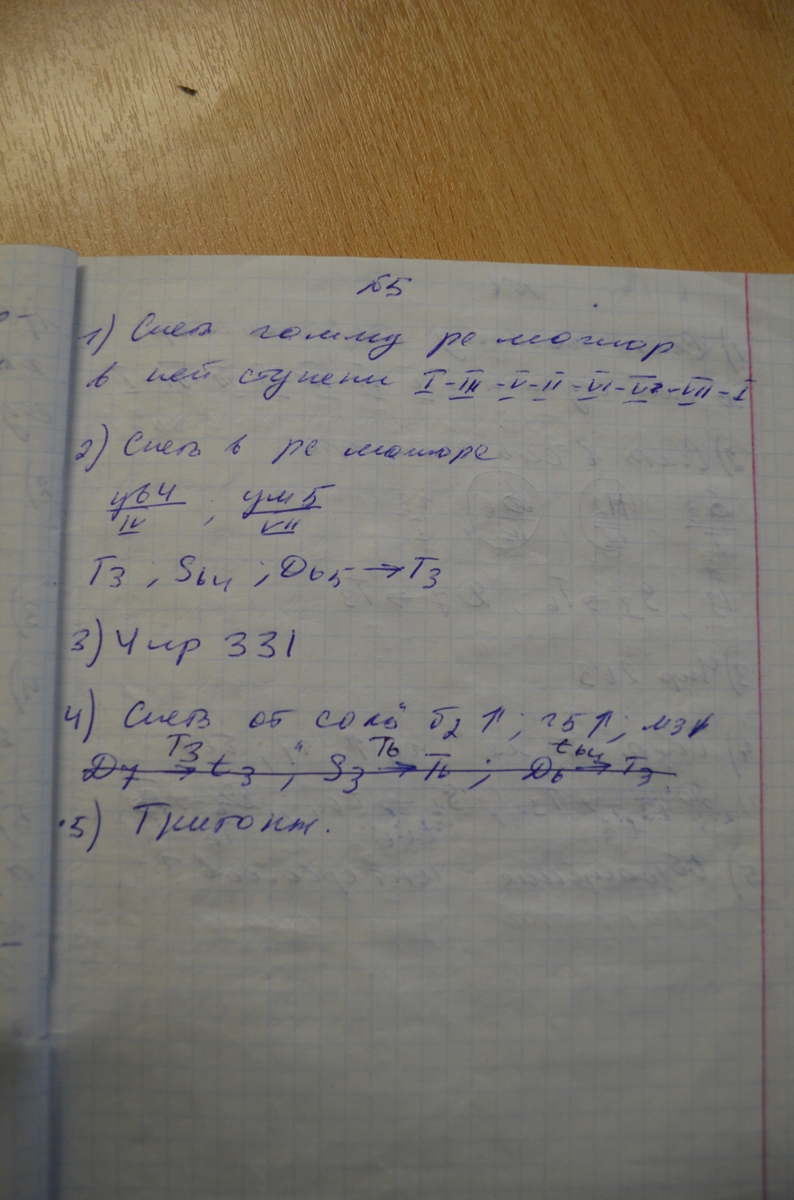 №5
1) Спеть гамму ре мажор
в ней ступени I-III-V-II-VI-V-VII-I
2) Спеть в ре мажоре
ув4/IV ; ум5/VII
T3 ; S64 ; D65 → T3
3) Чпр 331
4) Спеть от соль б2↑; ч5↑; м3↑
T3 T6 t64
D7 → t3 ; S3 → T6 ; D6 → T3
5) Тритоны.